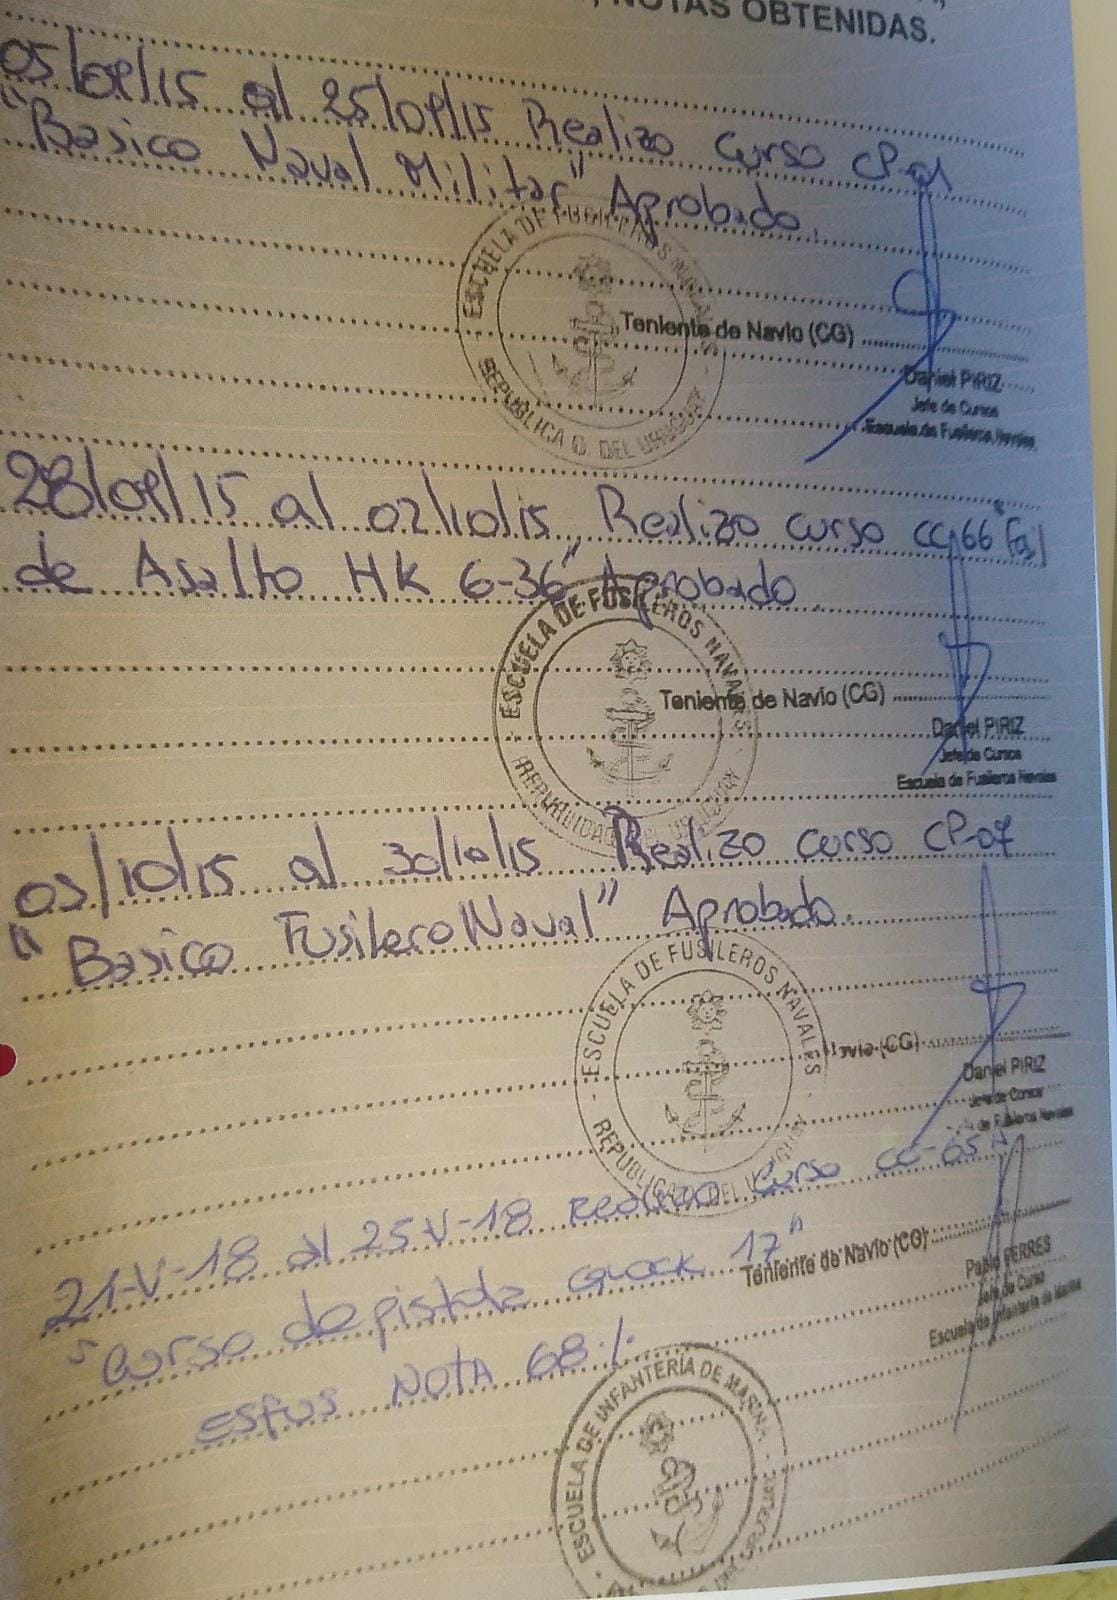 NOTAS OBTENIDAS.
05/09/15 al 25/09/15 Realizo curso CP-01
"Basico Naval Militar" Aprobado.
ESCUELA DE FUSILEROS NAVALES
REPUBLICA O. DEL URUGUAY
Teniente de Navio (CG)
Daniel PIRIZ
Jefe de Cursos
Escuela de Fusileros Navales
28/09/15 al 02/10/15 Realizo curso CC-66 "Fusil
de Asalto HK G-36" Aprobado.
ESCUELA DE FUSILEROS NAVALES
REPUBLICA O. DEL URUGUAY
Teniente de Navio (CG)
Daniel PIRIZ
Jefe de Cursos
Escuela de Fusileros Navales
05/10/15 al 30/10/15 Realizo curso CP-07
"Basico Fusilero Naval" Aprobado.
ESCUELA DE FUSILEROS NAVALES
REPUBLICA O. DEL URUGUAY
Navio (CG)
Daniel PIRIZ
Jefe de Cursos
de Fusileros Navales
21-V-18 al 25-V-18 realizo curso CC-65A
"Curso de pistola Glock 17"
Teniente de Navio (CG)
Pablo FERRES
Jefe de Curso
Escuela de Infantería de Marina
esfus NOTA 68%
ESCUELA DE INFANTERÍA DE MARINA